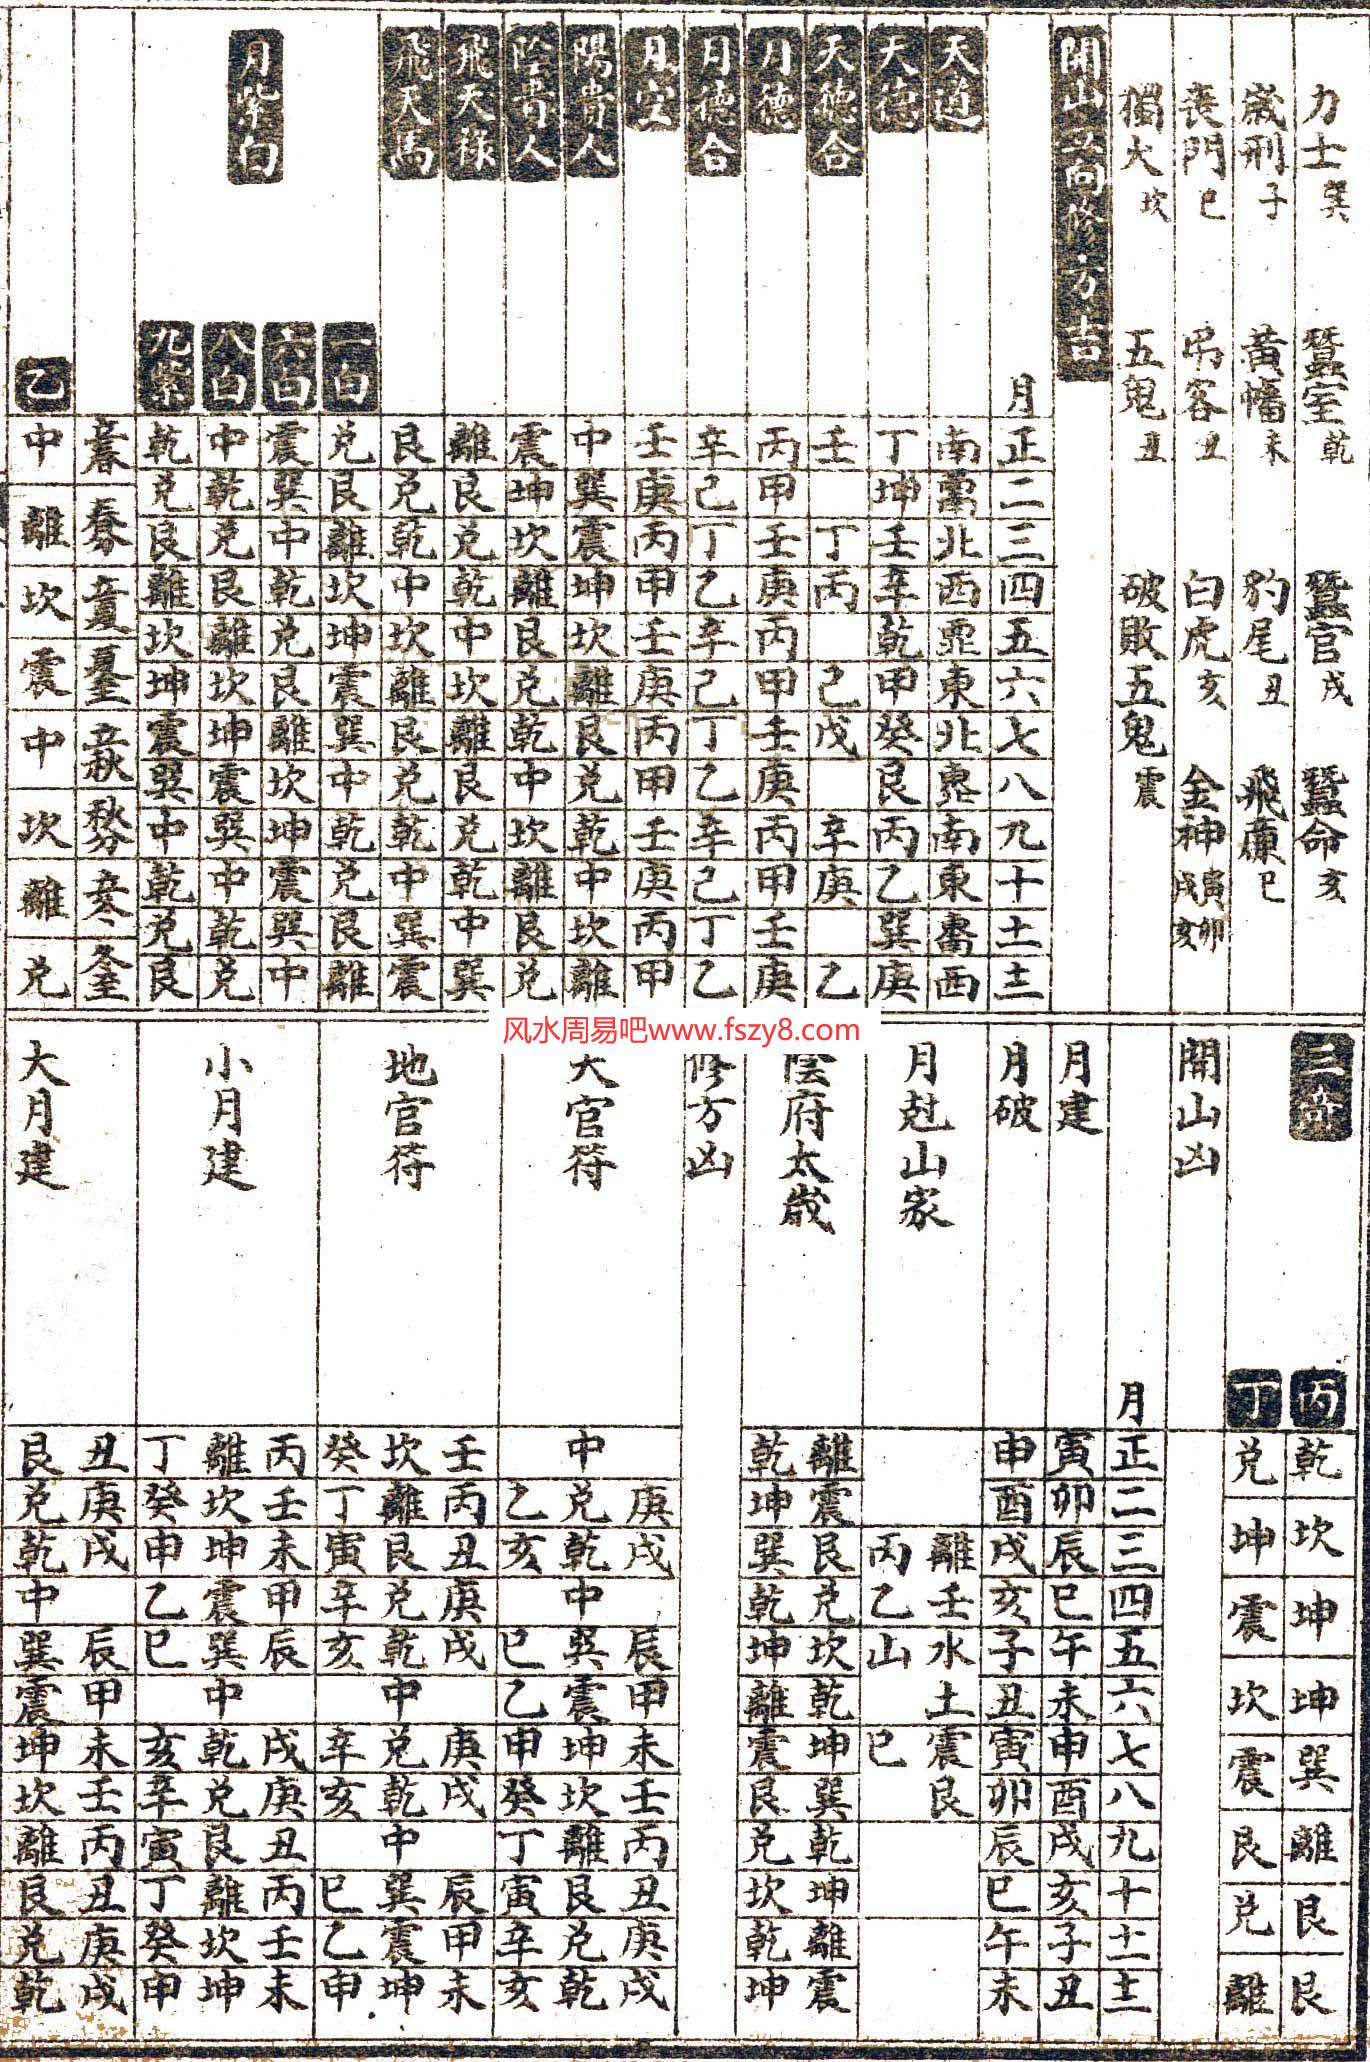 力士巽 蠶室乾 蠶官戌 蠶命亥
歲刑子 黃幡未 豹尾丑 飛廉巳
喪門巳 弔客丑 白虎亥 金神寅卯戌亥
獨火坎 五鬼丑 破敗五鬼震
開山立向修方吉
月 正 二 三 四 五 六 七 八 九 十 十一 十二
天道 南 西南 北 西 西北 東 北 東北 南 東 東南 西
天德 丁 坤 壬 辛 乾 甲 癸 艮 丙 乙 巽 庚
天德合 壬 丁 丙 己 戊 辛 庚 乙
月德 丙 甲 壬 庚 丙 甲 壬 庚 丙 甲 壬 庚
月德合 辛 己 丁 乙 辛 己 丁 乙 辛 己 丁 乙
月空 壬 庚 丙 甲 壬 庚 丙 甲 壬 庚 丙 甲
陽貴人 中 巽 震 坤 坎 離 艮 兌 乾 中 坎 離
陰貴人 震 坤 坎 離 艮 兌 乾 中 坎 離 艮 兌
飛天祿 離 艮 兌 乾 中 坎 離 艮 兌 乾 中 巽
飛天馬 艮 兌 乾 中 坎 離 艮 兌 乾 中 巽 震
月紫白
一白 兌 艮 離 坎 坤 震 巽 中 乾 兌 艮 離
六白 震 巽 中 乾 兌 艮 離 坎 坤 震 巽 中
八白 中 乾 兌 艮 離 坎 坤 震 巽 中 乾 兌
九紫 乾 兌 艮 離 坎 坤 震 巽 中 乾 兌 艮
立春 春分 立夏 夏至 立秋 秋分 立冬 冬至
乙 中 離 坎 震 中 坎 離 兌
风水周易吧www.fszy8.com
三奇
丙 乾 坎 坤 坤 巽 離 艮 艮
丁 兌 坤 震 坎 震 艮 兌 離
開山凶
月 正 二 三 四 五 六 七 八 九 十 十一 十二
月建 寅 卯 辰 巳 午 未 申 酉 戌 亥 子 丑
月破 申 酉 戌 亥 子 丑 寅 卯 辰 巳 午 未
月尅山家 離 壬 水 土 震 艮
丙 乙 山 巳
陰府太歲 離 震 艮 兌 坎 乾 坤 巽 乾 坤 離 震
乾 坤 巽 乾 坤 離 震 艮 兌 坎 乾 坤
修方凶
天官符 中 庚兌乙 戌乾亥 中 辰巽巳 甲震乙 未坤申 壬坎癸 丙離丁 丑艮寅 庚兌辛 戌乾亥
地官符 壬坎癸 丙離丁 丑艮寅 庚兌辛 戌乾亥 中 庚兌辛 戌乾亥 中 辰巽巳 甲震乙 未坤申
小月建 丙離丁 壬坎癸 未坤申 甲震乙 辰巽巳 中 戌乾亥 庚兌辛 丑艮寅 丙離丁 壬坎癸 未坤申
大月建 丑艮 庚兌 戌乾 中 辰巽 甲震 未坤 壬坎 丙離 丑艮 庚兌 戌乾